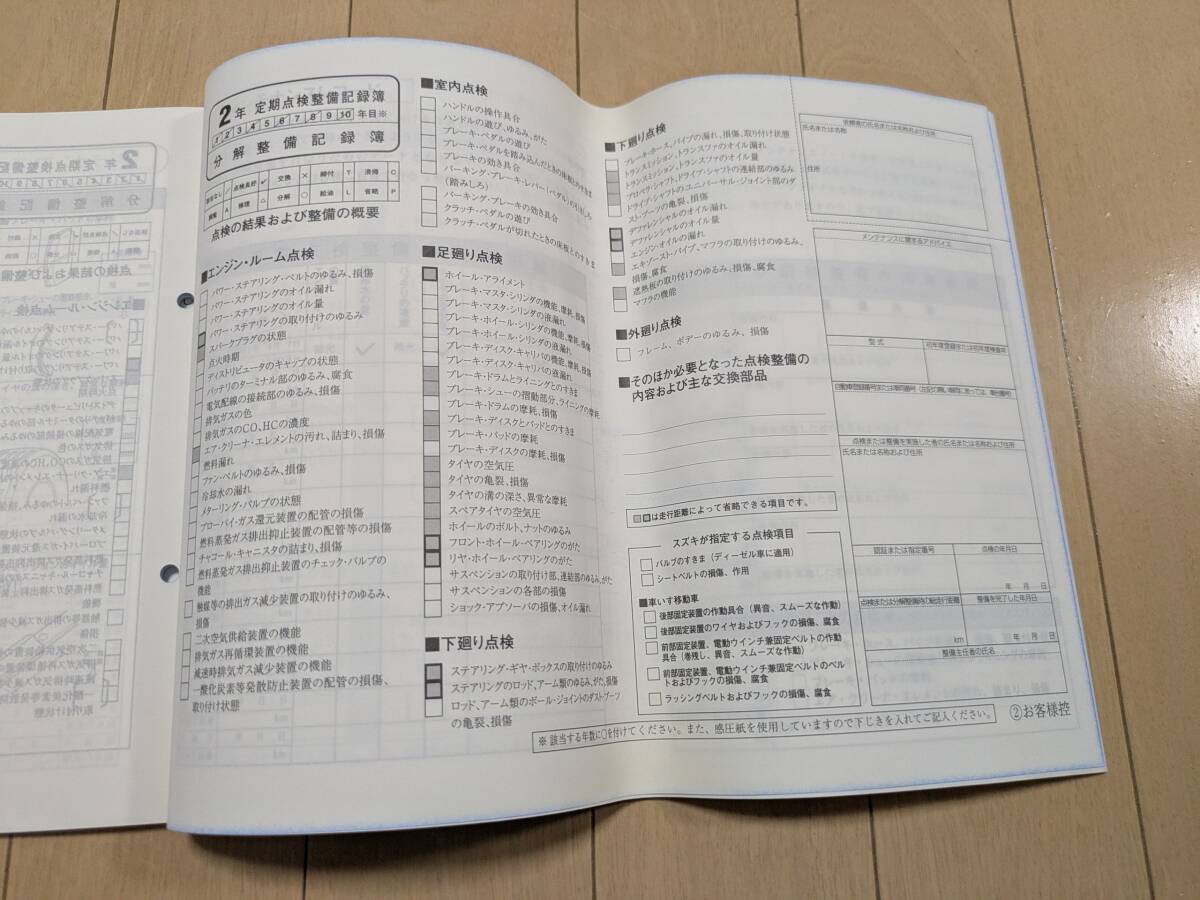 2年 定期点検整備記録簿
1 2 3 4 5 6 7 8 9 10 年目※
分解整備記録簿
該当なし ／ 点検良好 ✓ 交換 × 締付 T 清掃 C
調整 A 修理 △ 分解 ○ 給油 L 省略 P
点検の結果および整備の概要
■エンジン・ルーム点検
パワー・ステアリング・ベルトのゆるみ、損傷
パワー・ステアリングのオイル漏れ
パワー・ステアリングのオイル量
パワー・ステアリングの取り付けのゆるみ
スパークプラグの状態
点火時期
ディストリビュータのキャップの状態
バッテリのターミナル部のゆるみ、腐食
電気配線の接続部のゆるみ、損傷
排気ガスの色
排気ガスのCO、HCの濃度
エア・クリーナ・エレメントの汚れ、詰まり、損傷
燃料漏れ
ファン・ベルトのゆるみ、損傷
冷却水の漏れ
メターリング・バルブの状態
ブローバイ・ガス還元装置の配管の損傷
燃料蒸発ガス排出抑止装置の配管等の損傷
チャコール・キャニスタの詰まり、損傷
燃料蒸発ガス排出抑止装置のチェック・バルブの
機能
触媒等の排出ガス減少装置の取り付けのゆるみ、
損傷
二次空気供給装置の機能
排気ガス再循環装置の機能
減速時排気ガス減少装置の機能
一酸化炭素等発散防止装置の配管の損傷、
取り付け状態
■室内点検
ハンドルの操作具合
ハンドルの遊び、ゆるみ、がた
ブレーキ・ペダルの遊び
ブレーキ・ペダルを踏み込んだときの床板とのすきま
ブレーキの効き具合
パーキング・ブレーキ・レバー(ペダル)の引きしろ
(踏みしろ)
パーキング・ブレーキの効き具合
クラッチ・ペダルの遊び
クラッチ・ペダルが切れたときの床板とのすきま
■足廻り点検
ホイール・アライメント
ブレーキ・マスタ・シリンダの機能、摩耗、損傷
ブレーキ・マスタ・シリンダの液漏れ
ブレーキ・ホイール・シリンダの機能、摩耗、損傷
ブレーキ・ホイール・シリンダの液漏れ
ブレーキ・ディスク・キャリパの機能、摩耗、損傷
ブレーキ・ディスク・キャリパの液漏れ
ブレーキ・ドラムとライニングとのすきま
ブレーキ・シューの摺動部分、ライニングの摩耗
ブレーキ・ドラムの摩耗、損傷
ブレーキ・ディスクとパッドとのすきま
ブレーキ・パッドの摩耗
ブレーキ・ディスクの摩耗、損傷
タイヤの空気圧
タイヤの亀裂、損傷
タイヤの溝の深さ、異常な摩耗
スペアタイヤの空気圧
ホイールのボルト、ナットのゆるみ
フロント・ホイール・ベアリングのがた
リヤ・ホイール・ベアリングのがた
サスペンションの取り付け部、連結部のゆるみ、がた
サスペンションの各部の損傷
ショック・アブソーバの損傷、オイル漏れ
■下廻り点検
ステアリング・ギヤ・ボックスの取り付けのゆるみ
ステアリングのロッド、アーム類のゆるみ、がた、損傷
ロッド、アーム類のボール・ジョイントのダストブーツ
の亀裂、損傷
■下廻り点検
ブレーキ・ホース、パイプの漏れ、損傷、取り付け状態
トランスミッション、トランスファのオイル漏れ
トランスミッション、トランスファのオイル量
プロペラ・シャフト、ドライブ・シャフトの連結部のゆるみ
ドライブ・シャフトのユニバーサル・ジョイント部のダ
スト・ブーツの亀裂、損傷
デファレンシャルのオイル漏れ
デファレンシャルのオイル量
エンジン・オイルの漏れ
エキゾースト・パイプ、マフラの取り付けのゆるみ、
損傷、腐食
遮熱板の取り付けのゆるみ、損傷、腐食
マフラの機能
■外廻り点検
フレーム、ボデーのゆるみ、損傷
■そのほか必要となった点検整備の
内容および主な交換部品
は走行距離によって省略できる項目です。
スズキが指定する点検項目
バルブのすきま(ディーゼル車に適用)
シートベルトの損傷、作用
■車いす移動車
後部固定装置の作動具合(異音、スムーズな作動)
後部固定装置のワイヤおよびフックの損傷、腐食
前部固定装置、電動ウインチ兼固定ベルトの作動
具合(巻残し、異音、スムーズな作動)
前部固定装置、電動ウインチ兼固定ベルトのベル
トおよびフックの損傷、腐食
ラッシングベルトおよびフックの損傷、腐食
※該当する年数に○を付けてください。また、感圧紙を使用していますので下じきを入れてご記入ください。
②お客様控
依頼者の氏名または名称および住所
氏名または名称
住所
メンテナンスに関するアドバイス
型式
初年度登録または初年度検査年
点検または整備を実施した者の氏名または名称および住所
氏名または名称および住所
認証または指定番号
点検の年月日
年 月 日
点検または分解整備時の総走行距離
整備を完了した年月日
km
年 月 日
整備主任者の氏名